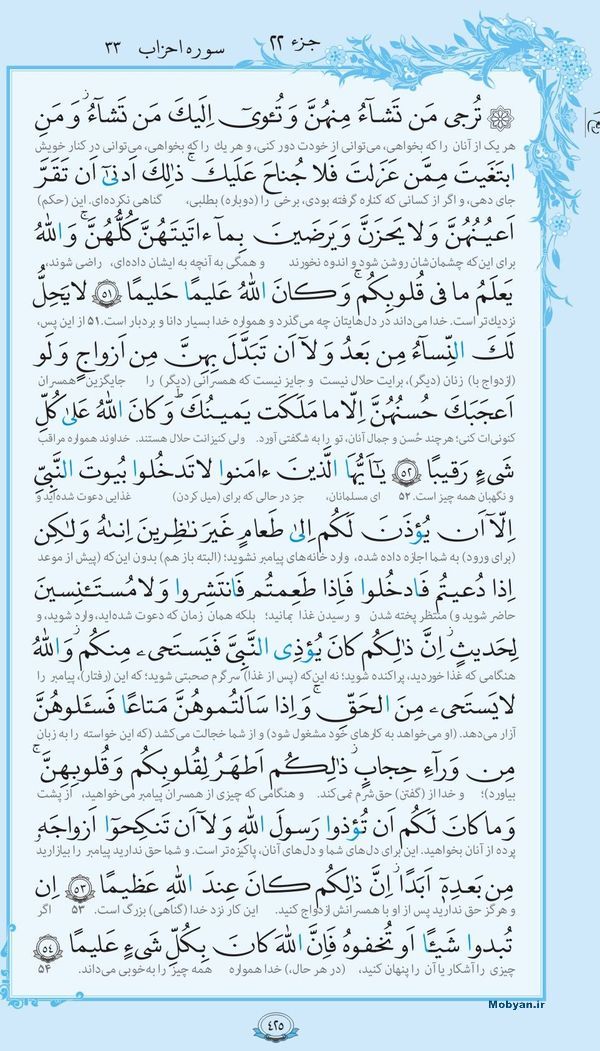 سوره احزاب ۳۳
جزء ۲۲
تُرجی مَن تَشاۤءُ مِنهُنَّ وَ تُـٔوۤی اِلَیكَ مَن تَشاۤءُ وَ مَنِ
هر یک از آنان را که بخواهی، می‌توانی از خودت دور کنی، و هر یک را که بخواهی، می‌توانی در کنار خویش
ابتَغَیتَ مِمَّن عَزَلتَ فَلا جُناحَ عَلَیكَ ذٰلِكَ اَدنیٰۤ اَن تَقَرَّ
جای دهی، و اگر از کسانی که کناره گرفته بودی، برخی را (دوباره) بطلبی، گناهی نکرده‌ای. این (حکم)
اَعیُنُهُنَّ وَ لا یَحزَنَّ وَ یَرضَینَ بِماۤ ءاتَیتَهُنَّ كُلُّهُنَّ وَ اللهُ
برای این‌که چشمان‌شان روشن شود و اندوه نخورند و همگی به آنچه به ایشان داده‌ای، راضی شوند،
یَعلَمُ ما فی قُلوبِكُم وَ كانَ اللهُ عَلیمًا حَلیمًا ۵۱ لا یَحِلُّ
نزدیک‌تر است. خدا می‌داند در دل‌هایتان چه می‌گذرد و همواره خدا بسیار دانا و بردبار است. ۵۱ از این پس،
لَكَ النِّساۤءُ مِن بَعدُ وَ لاۤ اَن تَبَدَّلَ بِهِنَّ مِن اَزواجٍ وَ لَو
(ازدواج با) زنان (دیگر)، برایت حلال نیست و جایز نیست که همسرانی (دیگر) را جایگزین همسران
اَعجَبَكَ حُسنُهُنَّ اِلّا ما مَلَكَت یَمینُكَ وَ كانَ اللهُ عَلیٰ كُلِّ
کنونی‌ات کنی؛ هرچند حُسن و جمال آنان، تو را به شگفتی آورد. ولی کنیزانت حلال هستند. خداوند همواره مراقب
شَیءٍ رَقیبًا ۵۲ یٰۤاَیُّهَا الَّذینَ ءامَنوا لا تَدخُلوا بُیوتَ النَّبِیِّ
و نگهبان همه چیز است. ۵۲ ای مسلمانان، جز در حالی که برای (میل کردن) غذایی دعوت شده‌اید و
اِلّاۤ اَن یُؤذَنَ لَكُم اِلیٰ طَعامٍ غَیرَ نٰظِرینَ اِنىٰهُ وَ لٰكِن
(برای ورود) به شما اجازه داده شده، وارد خانه‌های پیامبر نشوید؛ (البته باز هم) بدون این‌که (پیش از موعد
اِذا دُعیتُم فَادخُلوا فَاِذا طَعِمتُم فَانتَشِروا وَ لا مُستَـٔنِسینَ
حاضر شوید و) منتظر پخته شدن و رسیدن غذا بمانید؛ بلکه همان زمان که دعوت شده‌اید، وارد شوید، و
لِحَدیثٍ اِنَّ ذٰلِكُم كانَ یُؤذِی النَّبِیَّ فَیَستَحیۦ مِنكُم وَ اللهُ
هنگامی که غذا خوردید، پراکنده شوید؛ نه این‌که (پس از غذا) سرگرم صحبتی شوید؛ که این (رفتار)، پیامبر را
لا یَستَحیۦ مِنَ الحَقِّ وَ اِذا سَاَلتُموهُنَّ مَتاعًا فَسـَٔلوهُنَّ
آزار می‌دهد. (او می‌خواهد به کارهای خود مشغول شود) و از شما خجالت می‌کشد (که این خواسته را به زبان
مِن وَراۤءِ حِجابٍ ذٰلِكُم اَطهَرُ لِقُلوبِكُم وَ قُلوبِهِنَّ
بیاورد)؛ و خدا از (گفتن) حق شرم نمی‌کند. و هنگامی که چیزی از همسران پیامبر می‌خواهید، از پشت
وَ ما كانَ لَكُم اَن تُؤذوا رَسولَ اللهِ وَ لاۤ اَن تَنكِحوۤا اَزواجَهو
پرده از آنان بخواهید. این برای دل‌های شما و دل‌های آنان، پاکیزه‌تر است. و شما حق ندارید پیامبر را بیازارید
مِن بَعدِهۤ اَبَدًا اِنَّ ذٰلِكُم كانَ عِندَ اللهِ عَظیمًا ۵۳ اِن
و هرگز حق ندارید پس از او با همسرانش ازدواج کنید. این کار نزد خدا (گناهی) بزرگ است. ۵۳ اگر
تُبدوا شَیـًٔا اَو تُخفوهُ فَاِنَّ اللهَ كانَ بِكُلِّ شَیءٍ عَلیمًا ۵۴
چیزی را آشکار یا آن را پنهان کنید، (در هر حال،) خدا همواره همه چیز را به‌خوبی می‌داند. ۵۴
Mobyan.ir
۴۲۵